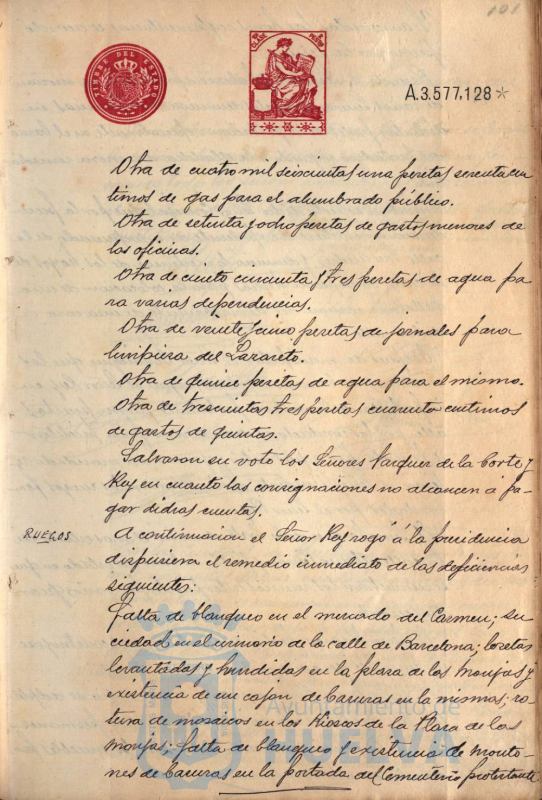 101
TIMBRE DEL ESTADO
CLASE
A.3.577.128*
Otra de cuatro mil seiscientas una pesetas sesenta cen
timos de gas para el alumbrado público.
Otra de setenta y ocho pesetas de gastos menores de
las oficinas.
Otra de ciento cincuenta y tres pesetas de agua pa
ra varias dependencias.
Otra de veinte y cinco pesetas de jornales para
limpieza del Lazareto.
Otra de quince pesetas de agua para el mismo.
Otra de trescientas tres pesetas cuarenta centimos
de gastos de quintas.
Salvaron su voto los Señores Vazquez de la Corte y
Rey en cuanto las consignaciones no alcancen á pa
gar dichas cuentas.
RUEGOS
A continuacion el Señor Rey rogó á la presidencia
dispusiera el remedio inmediato de las deficiencias
siguientes:
Falta de blanqueo en el mercado del Carmen; su
ciedad en el urinario de la calle de Barcelona; losetas
levantadas y hundidas en la plaza de las Monjas y
existencia de un cajon de basuras en la misma; ro
tura de mosaicos en los Kioscos de la Plaza de las
Monjas; falta de blanqueo y existencia de monto
nes de basuras en la portada del Cementerio protestante
Ayuntamiento de
HUELVA